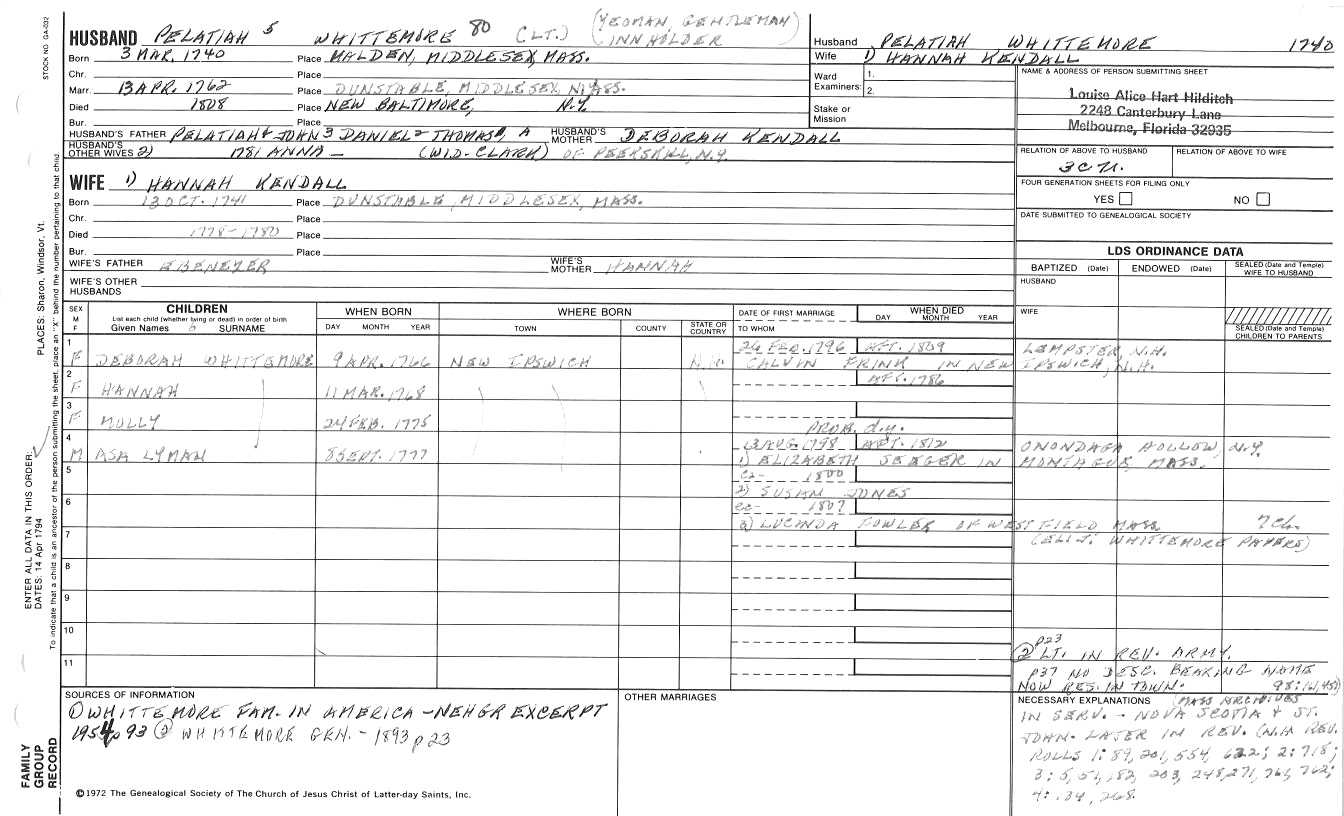 STOCK NO. GA-032
HUSBAND PELATIAH 5 WHITTEMORE 80 (LT.) (YEOMAN, GENTLEMAN
(INNHOLDER)
Born 3 MAR. 1740 Place MALDEN, MIDDLESEX, MASS.
Chr. Place
Marr. 13 APR. 1762 Place DUNSTABLE, MIDDLESEX, MASS.
Died 1808 Place NEW BALTIMORE, N.Y.
Bur. Place
HUSBAND'S FATHER PELATIAH4 JOHN3 DANIEL2 THOMAS1, A HUSBAND'S MOTHER DEBORAH KENDALL
HUSBAND'S OTHER WIVES 2) 1781 ANNA — (WID. CLARK) OF PEEKSKILL, N.Y.
WIFE 1) HANNAH KENDALL
Born 13 OCT. 1741 Place DUNSTABLE, MIDDLESEX, MASS.
Chr. Place
Died 1778-1780 Place
Bur. Place
WIFE'S FATHER EBENEZER WIFE'S MOTHER HANNAH
WIFE'S OTHER HUSBANDS
Husband PELATIAH WHITTEMORE 1740
Wife 1) HANNAH KENDALL
Ward Examiners: 1. 2.
Stake or Mission
NAME & ADDRESS OF PERSON SUBMITTING SHEET
Louise Alice Hart Hilditch
2248 Canterbury Lane
Melbourne, Florida 32935
RELATION OF ABOVE TO HUSBAND RELATION OF ABOVE TO WIFE
FOUR GENERATION SHEETS FOR FILING ONLY
YES NO
DATE SUBMITTED TO GENEALOGICAL SOCIETY
LDS ORDINANCE DATA
BAPTIZED (Date) ENDOWED (Date) SEALED (Date and Temple) WIFE TO HUSBAND
HUSBAND
WIFE
SEALED (Date and Temple) CHILDREN TO PARENTS
SEX M F CHILDREN WHEN BORN WHERE BORN DATE OF FIRST MARRIAGE WHEN DIED
List each child (whether living or dead) in order of birth
Given Names 6 SURNAME DAY MONTH YEAR TOWN COUNTY STATE OR COUNTRY TO WHOM DAY MONTH YEAR
1 26 FEB. 1796 AFT. 1809 LEMPSTER, N.H.
F DEBORAH WHITTEMORE 9 APR. 1766 NEW IPSWICH N.H. CALVIN FRINK IN NEW IPSWICH, N.H.
2 AFT. 1786
F HANNAH 11 MAR. 1768
3
F MOLLY 24 FEB. 1775 PROB. d.y.
4 13 AUG. 1798 AFT. 1812 ONONDAGA HOLLOW, N.Y.
M ASA LYMAN 8 SEPT. 1777 1) ELIZABETH SEEGER IN MONTAGUE, MASS.
5 ca- 1800
2) SUSAN JONES
6 ca- 1807
3) LUCINDA FOWLER OF WESTFIELD MASS. 7 ch.
7 (ELLJ: WHITTEMORE PAPERS)
8
9
10
11
p23
2 LT. IN REV. ARMY.
p37 NO DESC. BEARING NAME
NOW RES. IN TOWN.
SOURCES OF INFORMATION
① WHITTEMORE FAM. IN AMERICA - NEHGR EXCERPT
1954 p 93 ② WHITTEMORE GEN. - 1893 p23
©1972 The Genealogical Society of The Church of Jesus Christ of Latter-day Saints, Inc.
OTHER MARRIAGES
NECESSARY EXPLANATIONS (MASS ARCHIVES
IN SERV. - NOVA SCOTIA & ST.
JOHN. LATER IN REV. (N.H REV.
ROLLS 1: 89, 201, 554, 622; 2: 718;
3: 5, 51, 182, 203, 248, 271, 761, 762;
4: 134, 268.
ENTER ALL DATA IN THIS ORDER:
DATES: 14 Apr 1794 PLACES: Sharon, Windsor, Vt.
To indicate that a child is an ancestor of the person submitting the sheet, place an "X" behind the number pertaining to that child
FAMILY GROUP RECORD